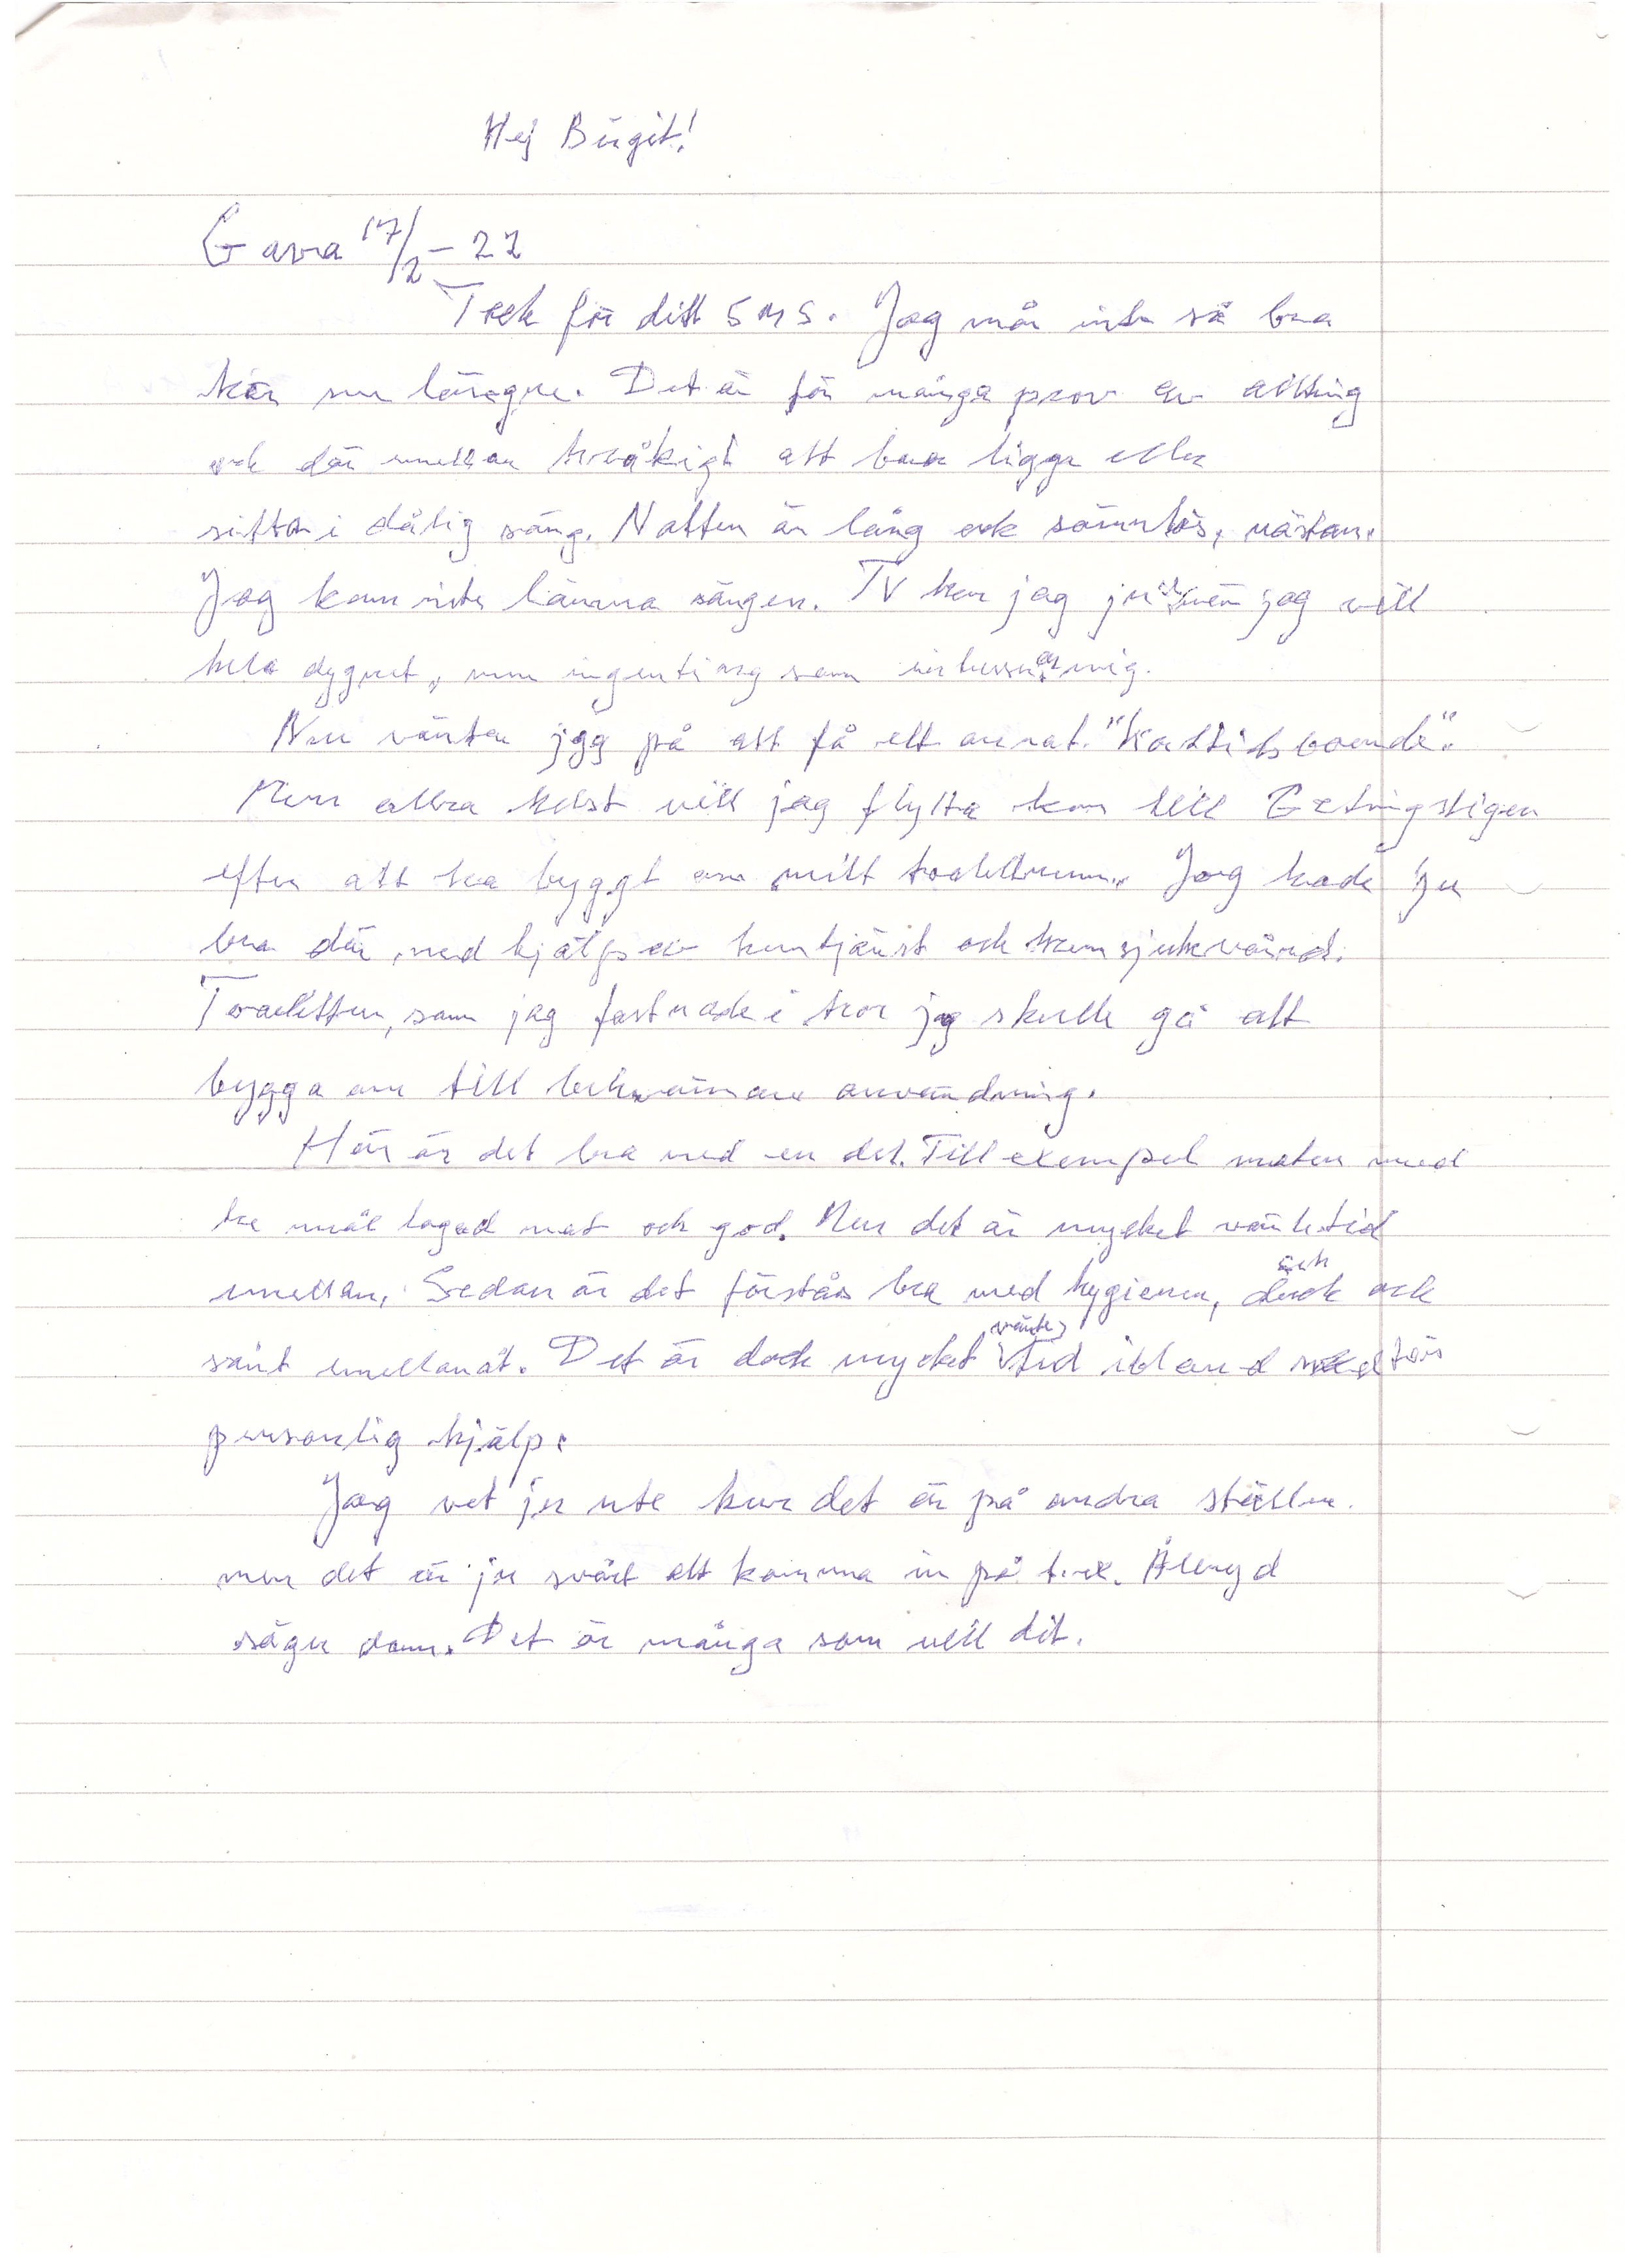 Hej Birgit!
Gävra 17/2-22
Tack för ditt SMS. Jag mår inte så bra
här nu längre. Det är för många prov av allting
och där emellan tråkigt att bara ligga eller
sitta i dålig säng. Natten är lång och sömnlös, nästan.
Jag kan inte lämna sängen. TV har jag ju när jag vill
hela dygnet, men ingenting som intresserar mig.
Nu väntar jag på att få ett annat "korttidsboende".
Men allra helst vill jag flytta hem till Getingstigen
efter att ha byggt om mitt toalettrum. Jag hade ju
bra där med hjälp av hemtjänst och hemsjukvård.
Toaletten, som jag fastnade i tror jag skulle gå att
bygga om till bekvämare användning.
Här är det bra med en del. Till exempel maten med
tre mål lagad mat och god. Men det är mycket väntetid
emellan. Sedan är det förstås bra med hygienen, dusch och
sånt emellanåt. Det är dock mycket väntetid ibland för
personlig hjälp.
Jag vet ju inte hur det är på andra ställen.
men det är ju svårt att komma in på t.ex. Åleryd
säger dom. Det är många som vill dit.